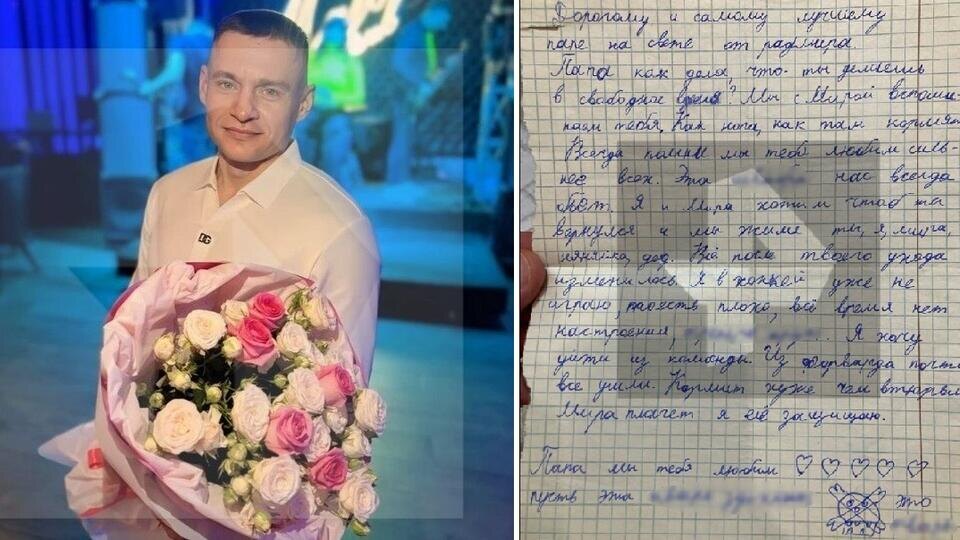 DG
Дорогому и самому лучшему
папе на свете от радмира.
Папа как дела, что ты делаешь
в свободное время? Мы с Мирой вспоми-
наем тебя. Как нога, как там кормят
Всегда помни мы тебя любим силь-
нее всех. Эта нас всегда
бьёт. Я и Мира хотим чтоб ты
вернулся и мы жили ты, я, мира,
няняйка, дед. Всё посл твоего ухода
изменилось. Я в хоккей уже не
играю, поесть плохо, всё время нет
настроения, ... Я хочу
уйти из команды. Из форварда почти
все ушли. Кормит хуже чем
Мира плачет я её защищаю.
Папа мы тебя любим ♡♡♡♡♡
пусть эта это